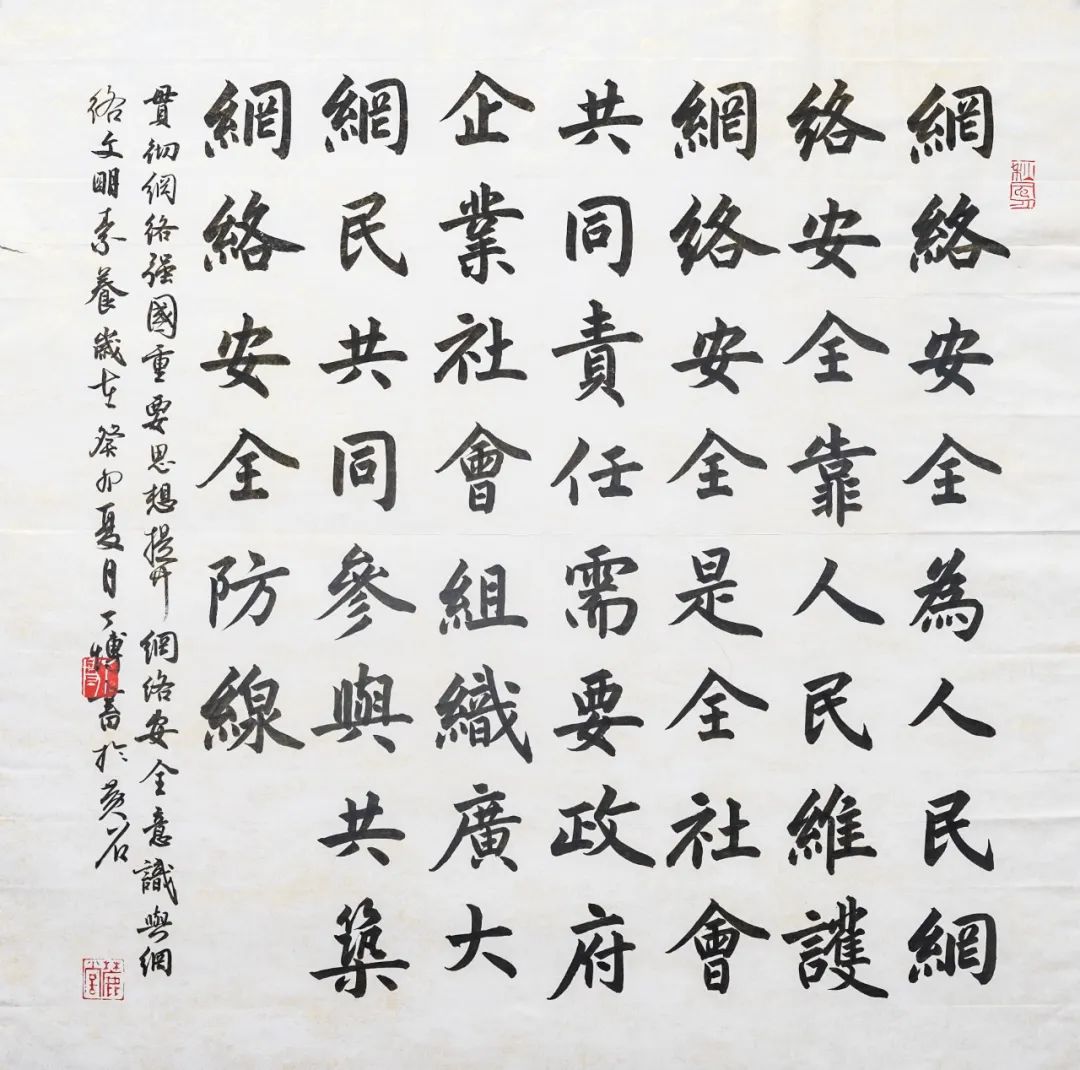 網絡安全為人民網
絡安全靠人民維護
網絡安全是全社會
共同責任需要政府
企業社會組織廣大
網民共同參與共築
網絡安全防線
貫彻網络强國重要思想提升網络安全意識與網
络文明素養歲在癸卯夏月丁博書於黄石